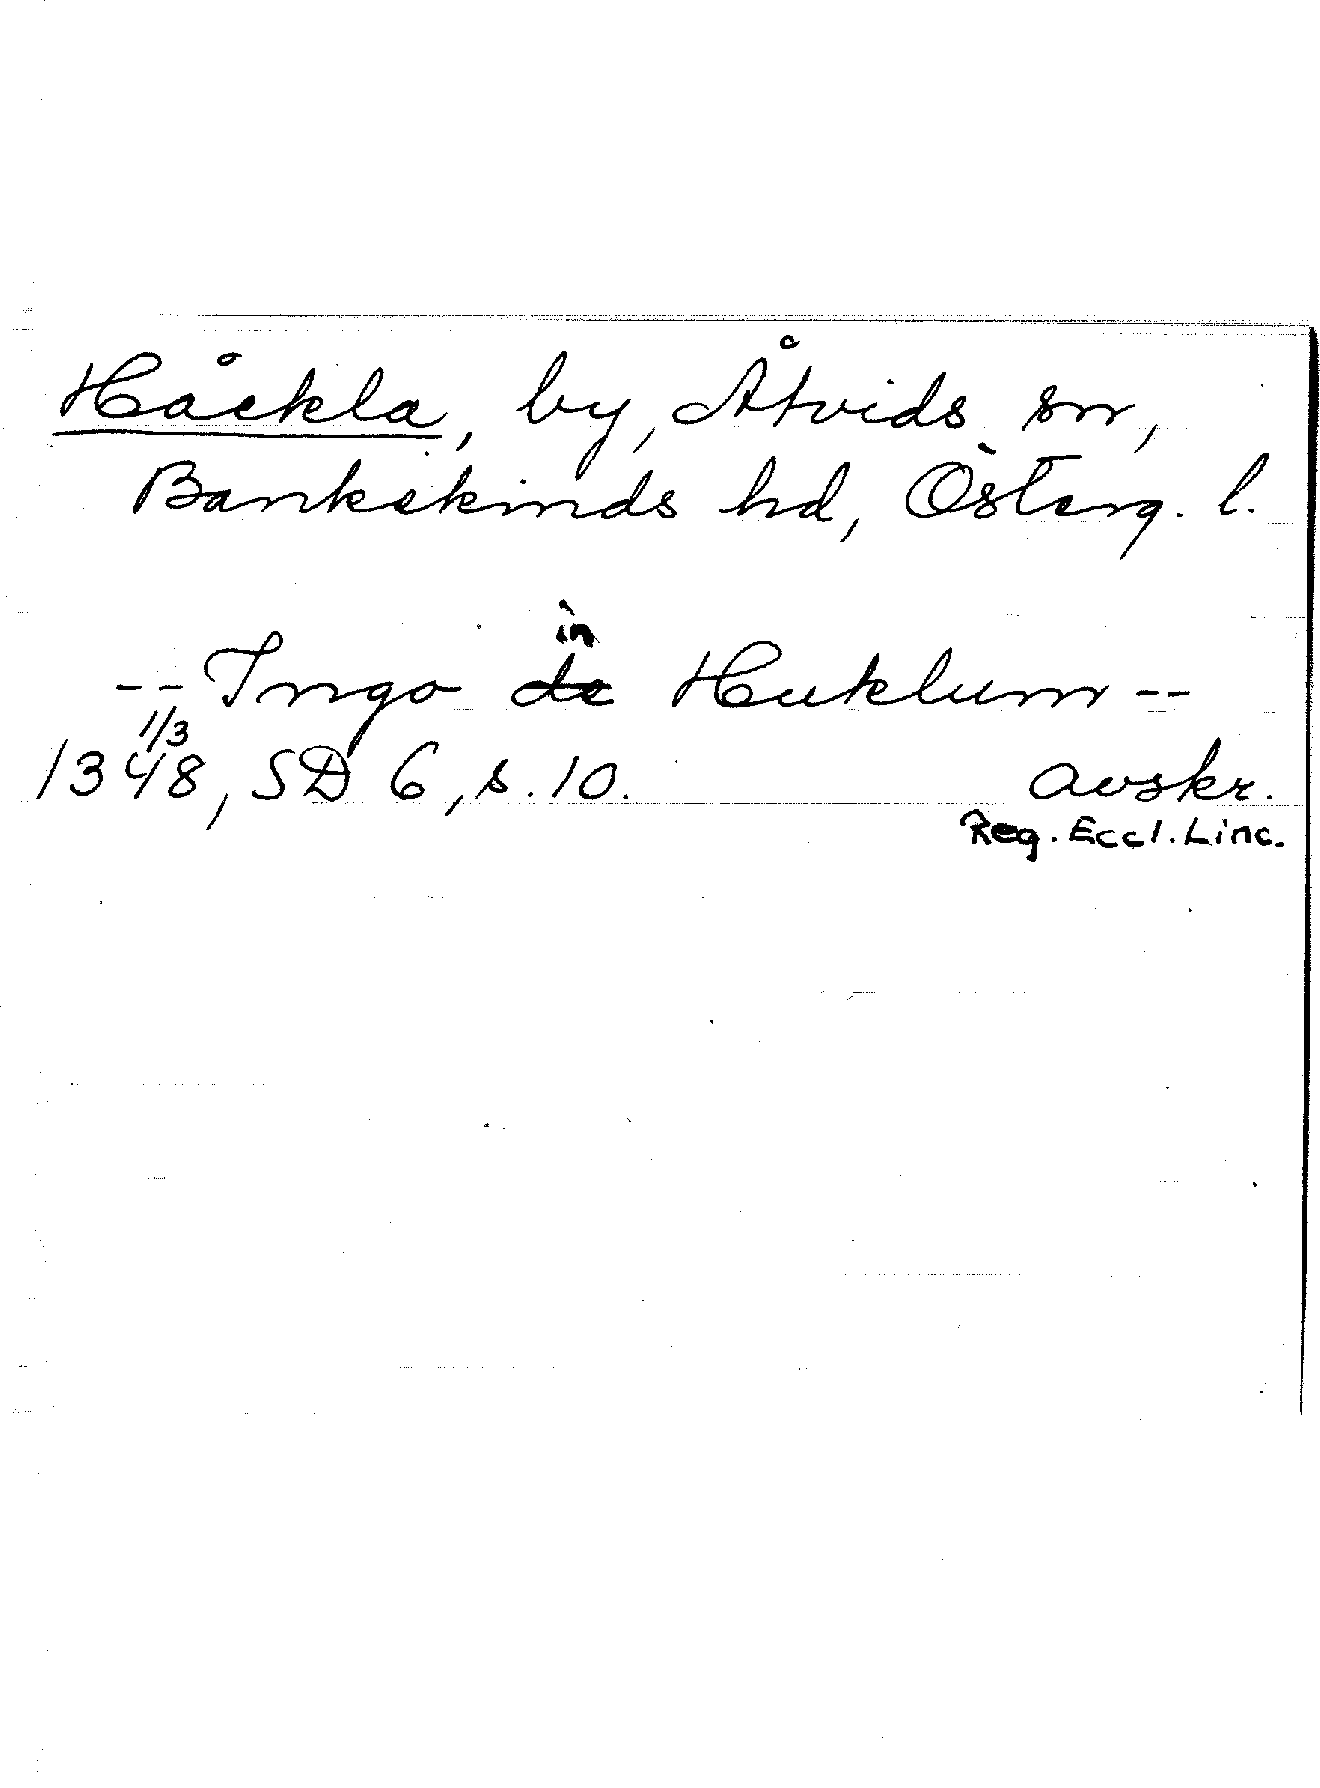 Håckla, by, Åtvids sn,
Bankekinds hd, Österg. l.
in
-- Ingo de Huklum --
1/3
1348, SD 6, s. 10. avskr.
Reg. Eccl. Linc.